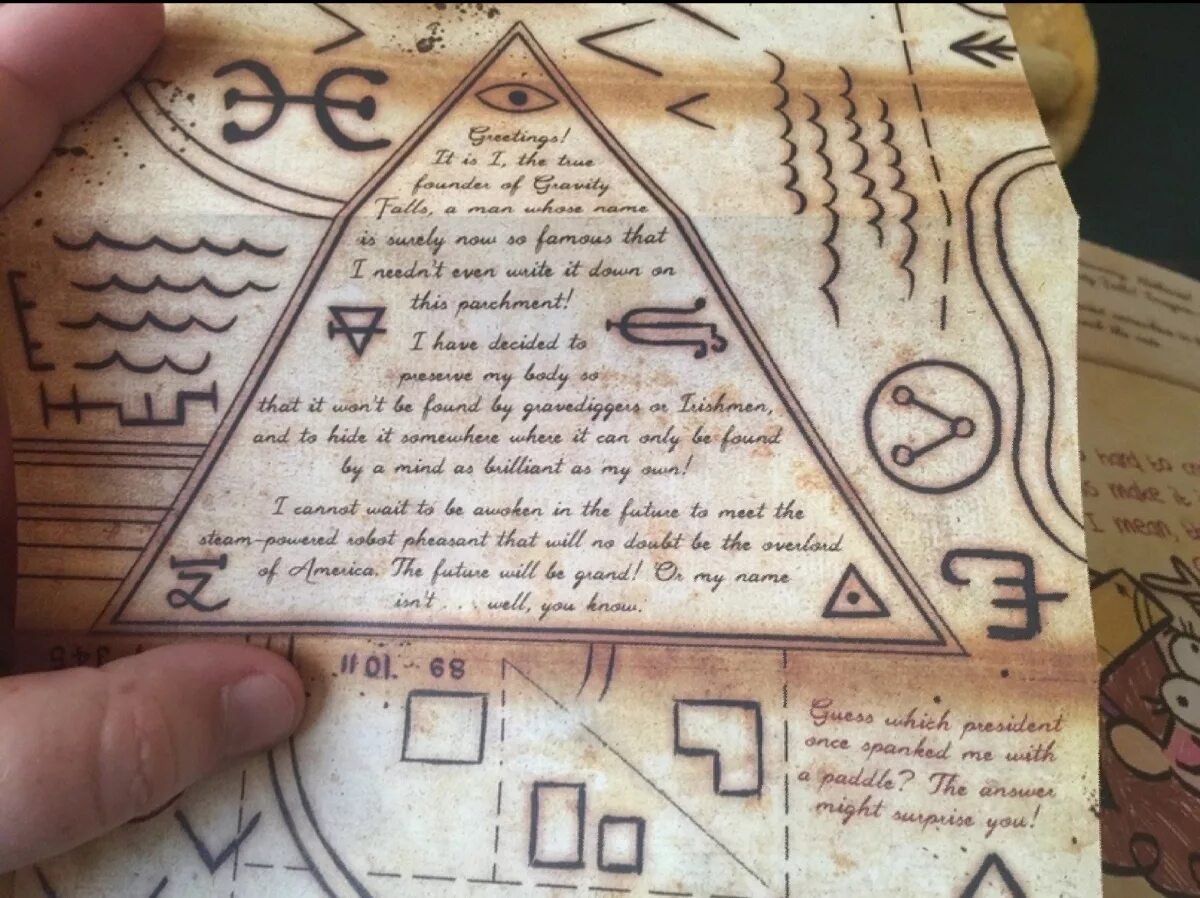 Greetings!
It is I, the true
founder of Gravity
Falls, a man whose name
is surely now so famous that
I needn't even write it down on
this parchment!
I have decided to
preserve my body so
that it won't be found by gravediggers or Irishmen,
and to hide it somewhere where it can only be found
by a mind as brilliant as my own!
I cannot wait to be awoken in the future to meet the
steam-powered robot pheasant that will no doubt be the overlord
of America. The future will be grand! Or my name
isn't . . . well, you know.
Guess which president
once spanked me with
a paddle? The answer
might surprise you!
hard to
make it
I mean,